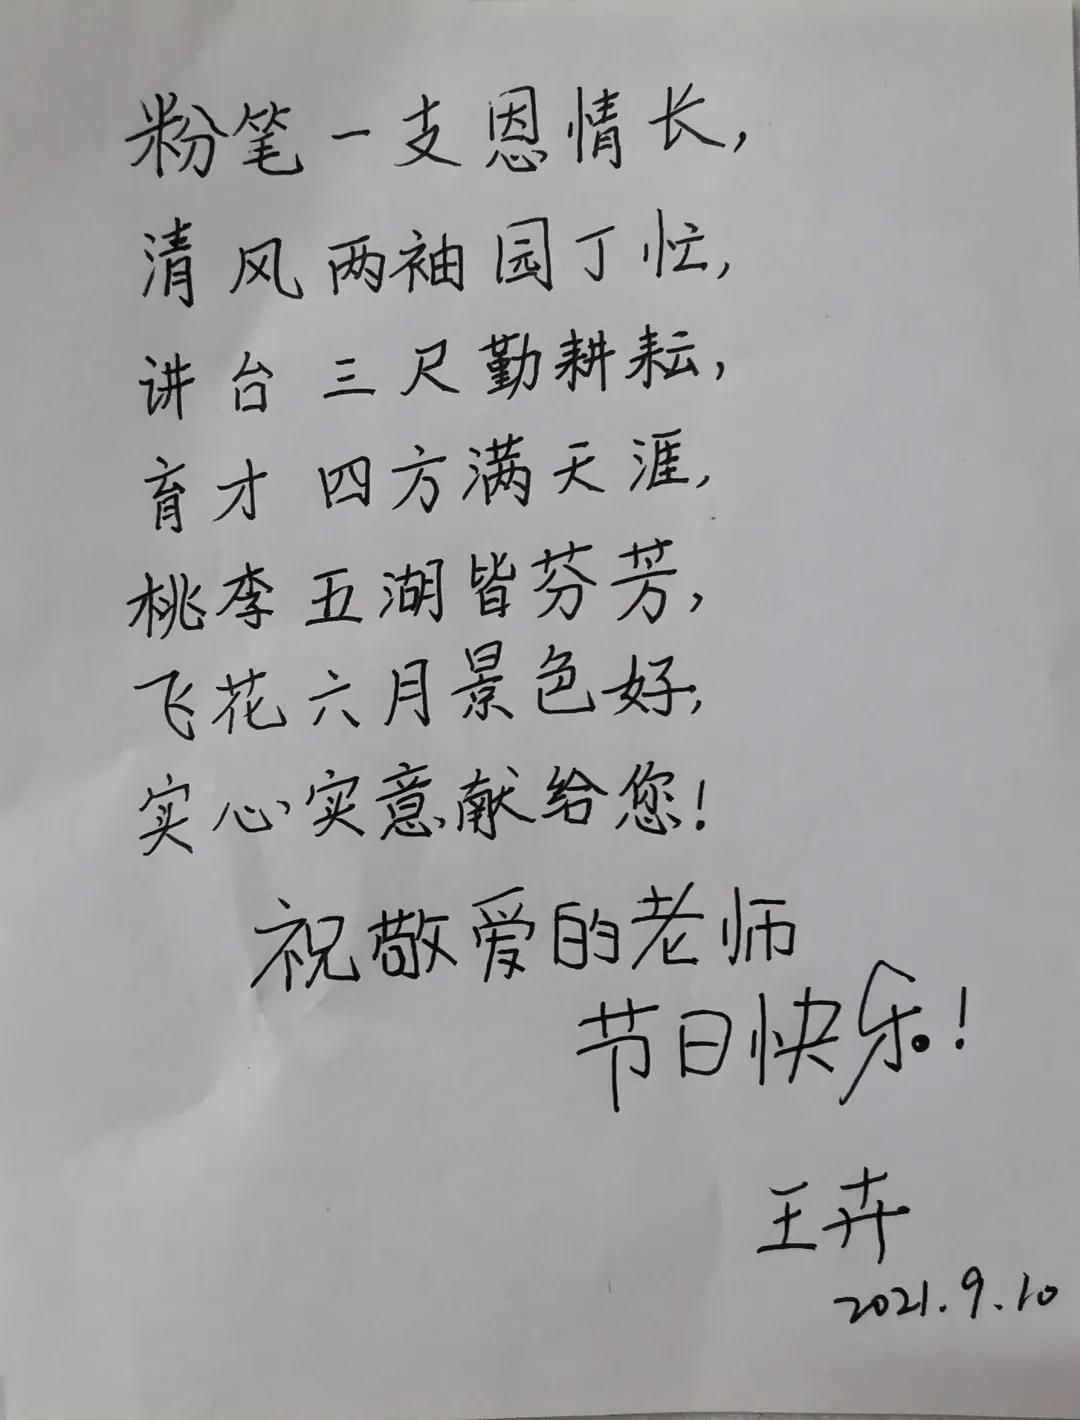 粉笔一支恩情长,
清风两袖园丁忙,
讲台三尺勤耕耘,
育才四方满天涯,
桃李五湖皆芬芳,
飞花六月景色好,
实心实意献给您!
祝敬爱的老师
节日快乐!
王卉
2021.9.10